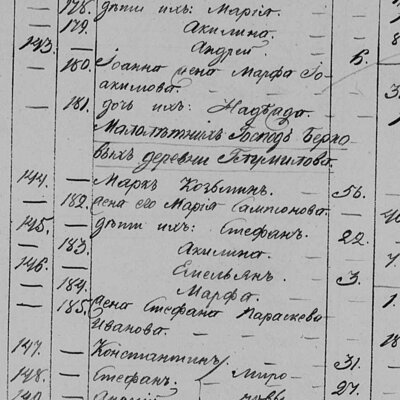 — 178. дѣти ихъ: Марія.
— 179. Акилина.
143. — Андрей 5.
— 180. Іоанна жена Марфа Іо-
акимова.
— 181. дочь ихъ: Надежда.
Малолѣтнихъ Господъ Верхо-
выхъ деревни
144. — Маркъ Козьминъ. — 56.
— 182. жена его Марія Сампсонова.
145. — дѣти ихъ: Стефанъ. 22.
— 183. Акилина. 7.
146. — Емельянъ. 3.
— 184. Марфа. 1.
— 185. жена Стефана Параскева
Иванова. 18
147. — Константинъ 31.
148. — Стефанъ. 27.